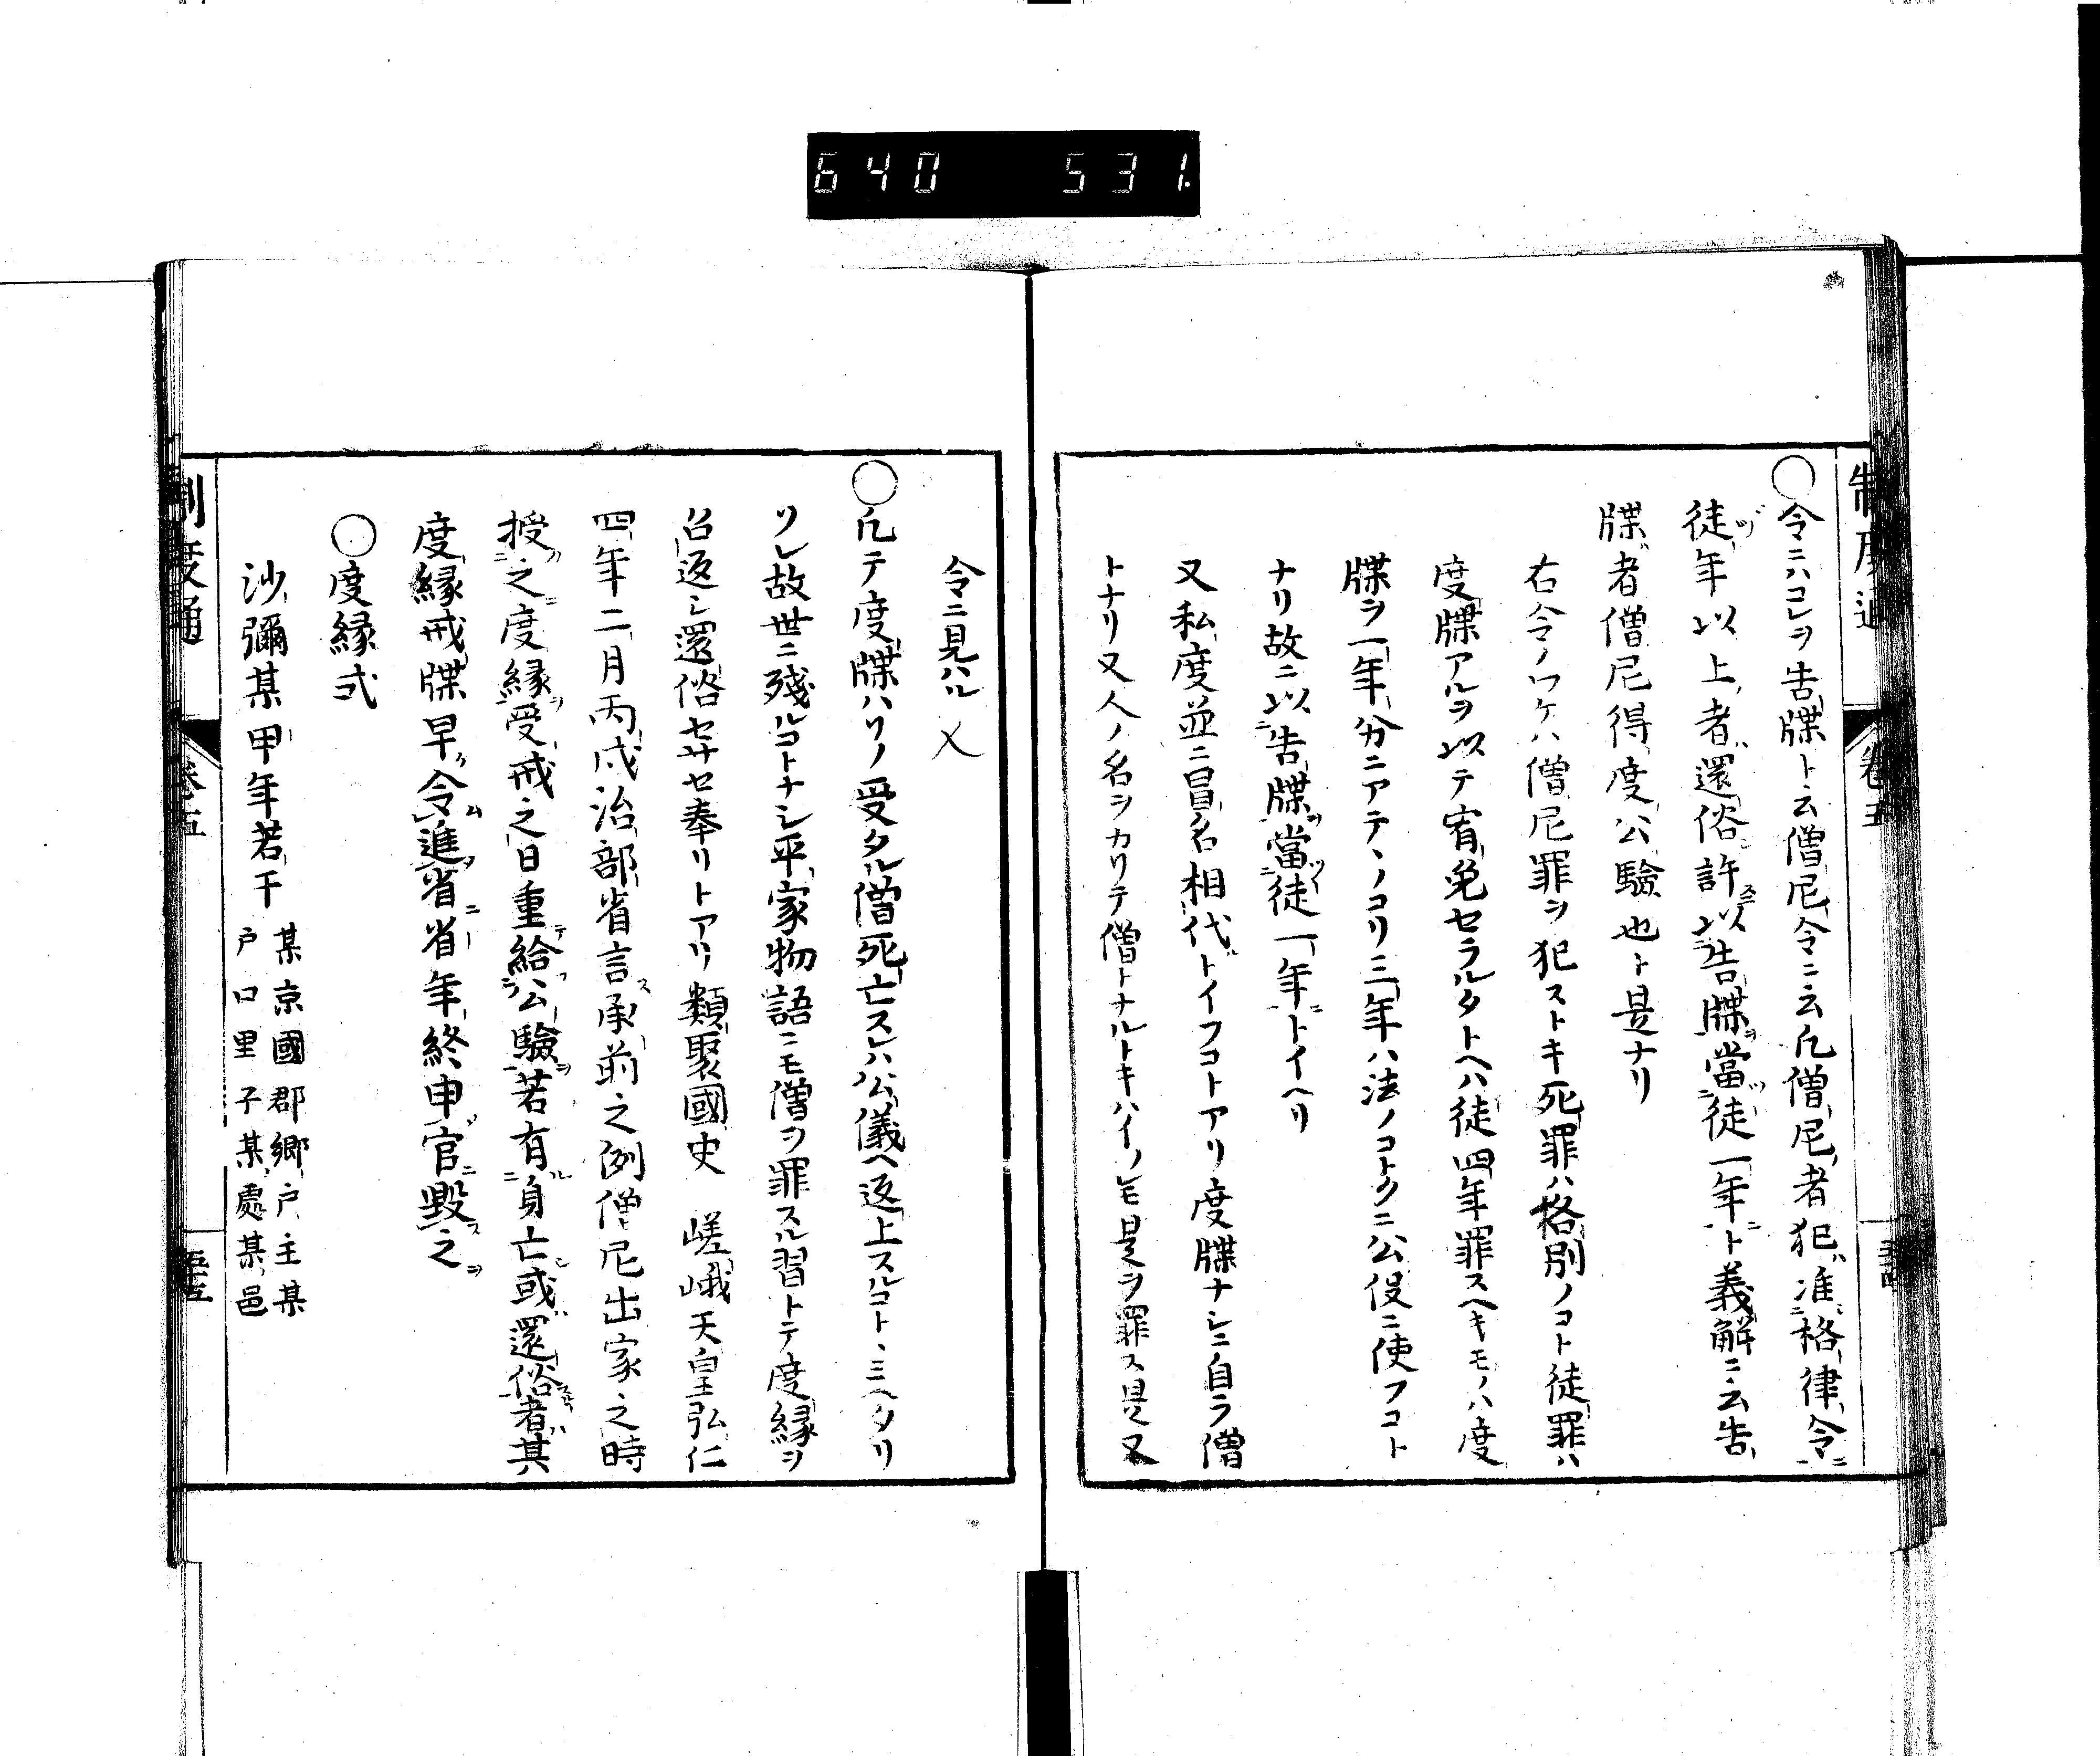 640 531.
制度通 卷五
○令ニハコレヲ告牒ト云僧尼令ニ云凢僧尼者犯准格律令
徒年以上者還俗許以告牒當徒一年ト義解ニ云告
牒者僧尼得度公驗也ト是ナリ
右令ノワケハ僧尼罪ヲ犯ストキ死罪ハ格別ノコト徒罪ハ
度牒アルヲ以テ宥免セラルタトヘハ徒四年罪スヘキモノハ度
牒ヲ一年分ニアテヽノコリ三年ハ法ノコトクニ公役ニ使フコト
ナリ故ニ以告牒當徒一年トイヘリ
又私度並ニ冒名相代トイフコトアリ度牒ナシニ自ラ僧
トナリ又人ノ名ヲカリテ僧トナルトキハイノレモ是ヲ罪ス是又
令ニ見ハル
○凢テ度牒ハソノ受タル僧死亡スレハ公儀ヘ返上スルコトヽミヘタリ
ソレ故世ニ殘ルコトナシ平家物語ニモ僧ヲ罪スル習トテ度縁ヲ
召返シ還俗セサセ奉リトアリ類聚國史 嵯峨天皇弘仁
四年二月丙戌治部省言承前之例僧尼出家之時
授之度縁受戒之日重給公驗若有身亡或還俗者其
度縁戒牒早令進省省年終申官毀之
○度縁式
沙彌某甲年若干
某京國郡鄉戸主某
戸口里子某處某邑
制度通 卷五